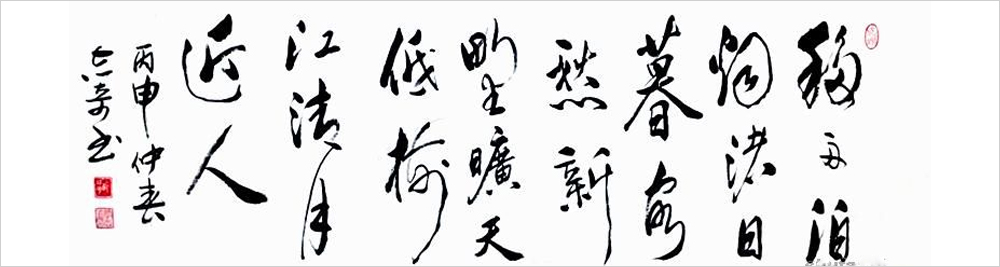 移舟泊
烟渚日
暮客
愁新
野曠天
低樹
江清月
近人
丙申仲春
奇书